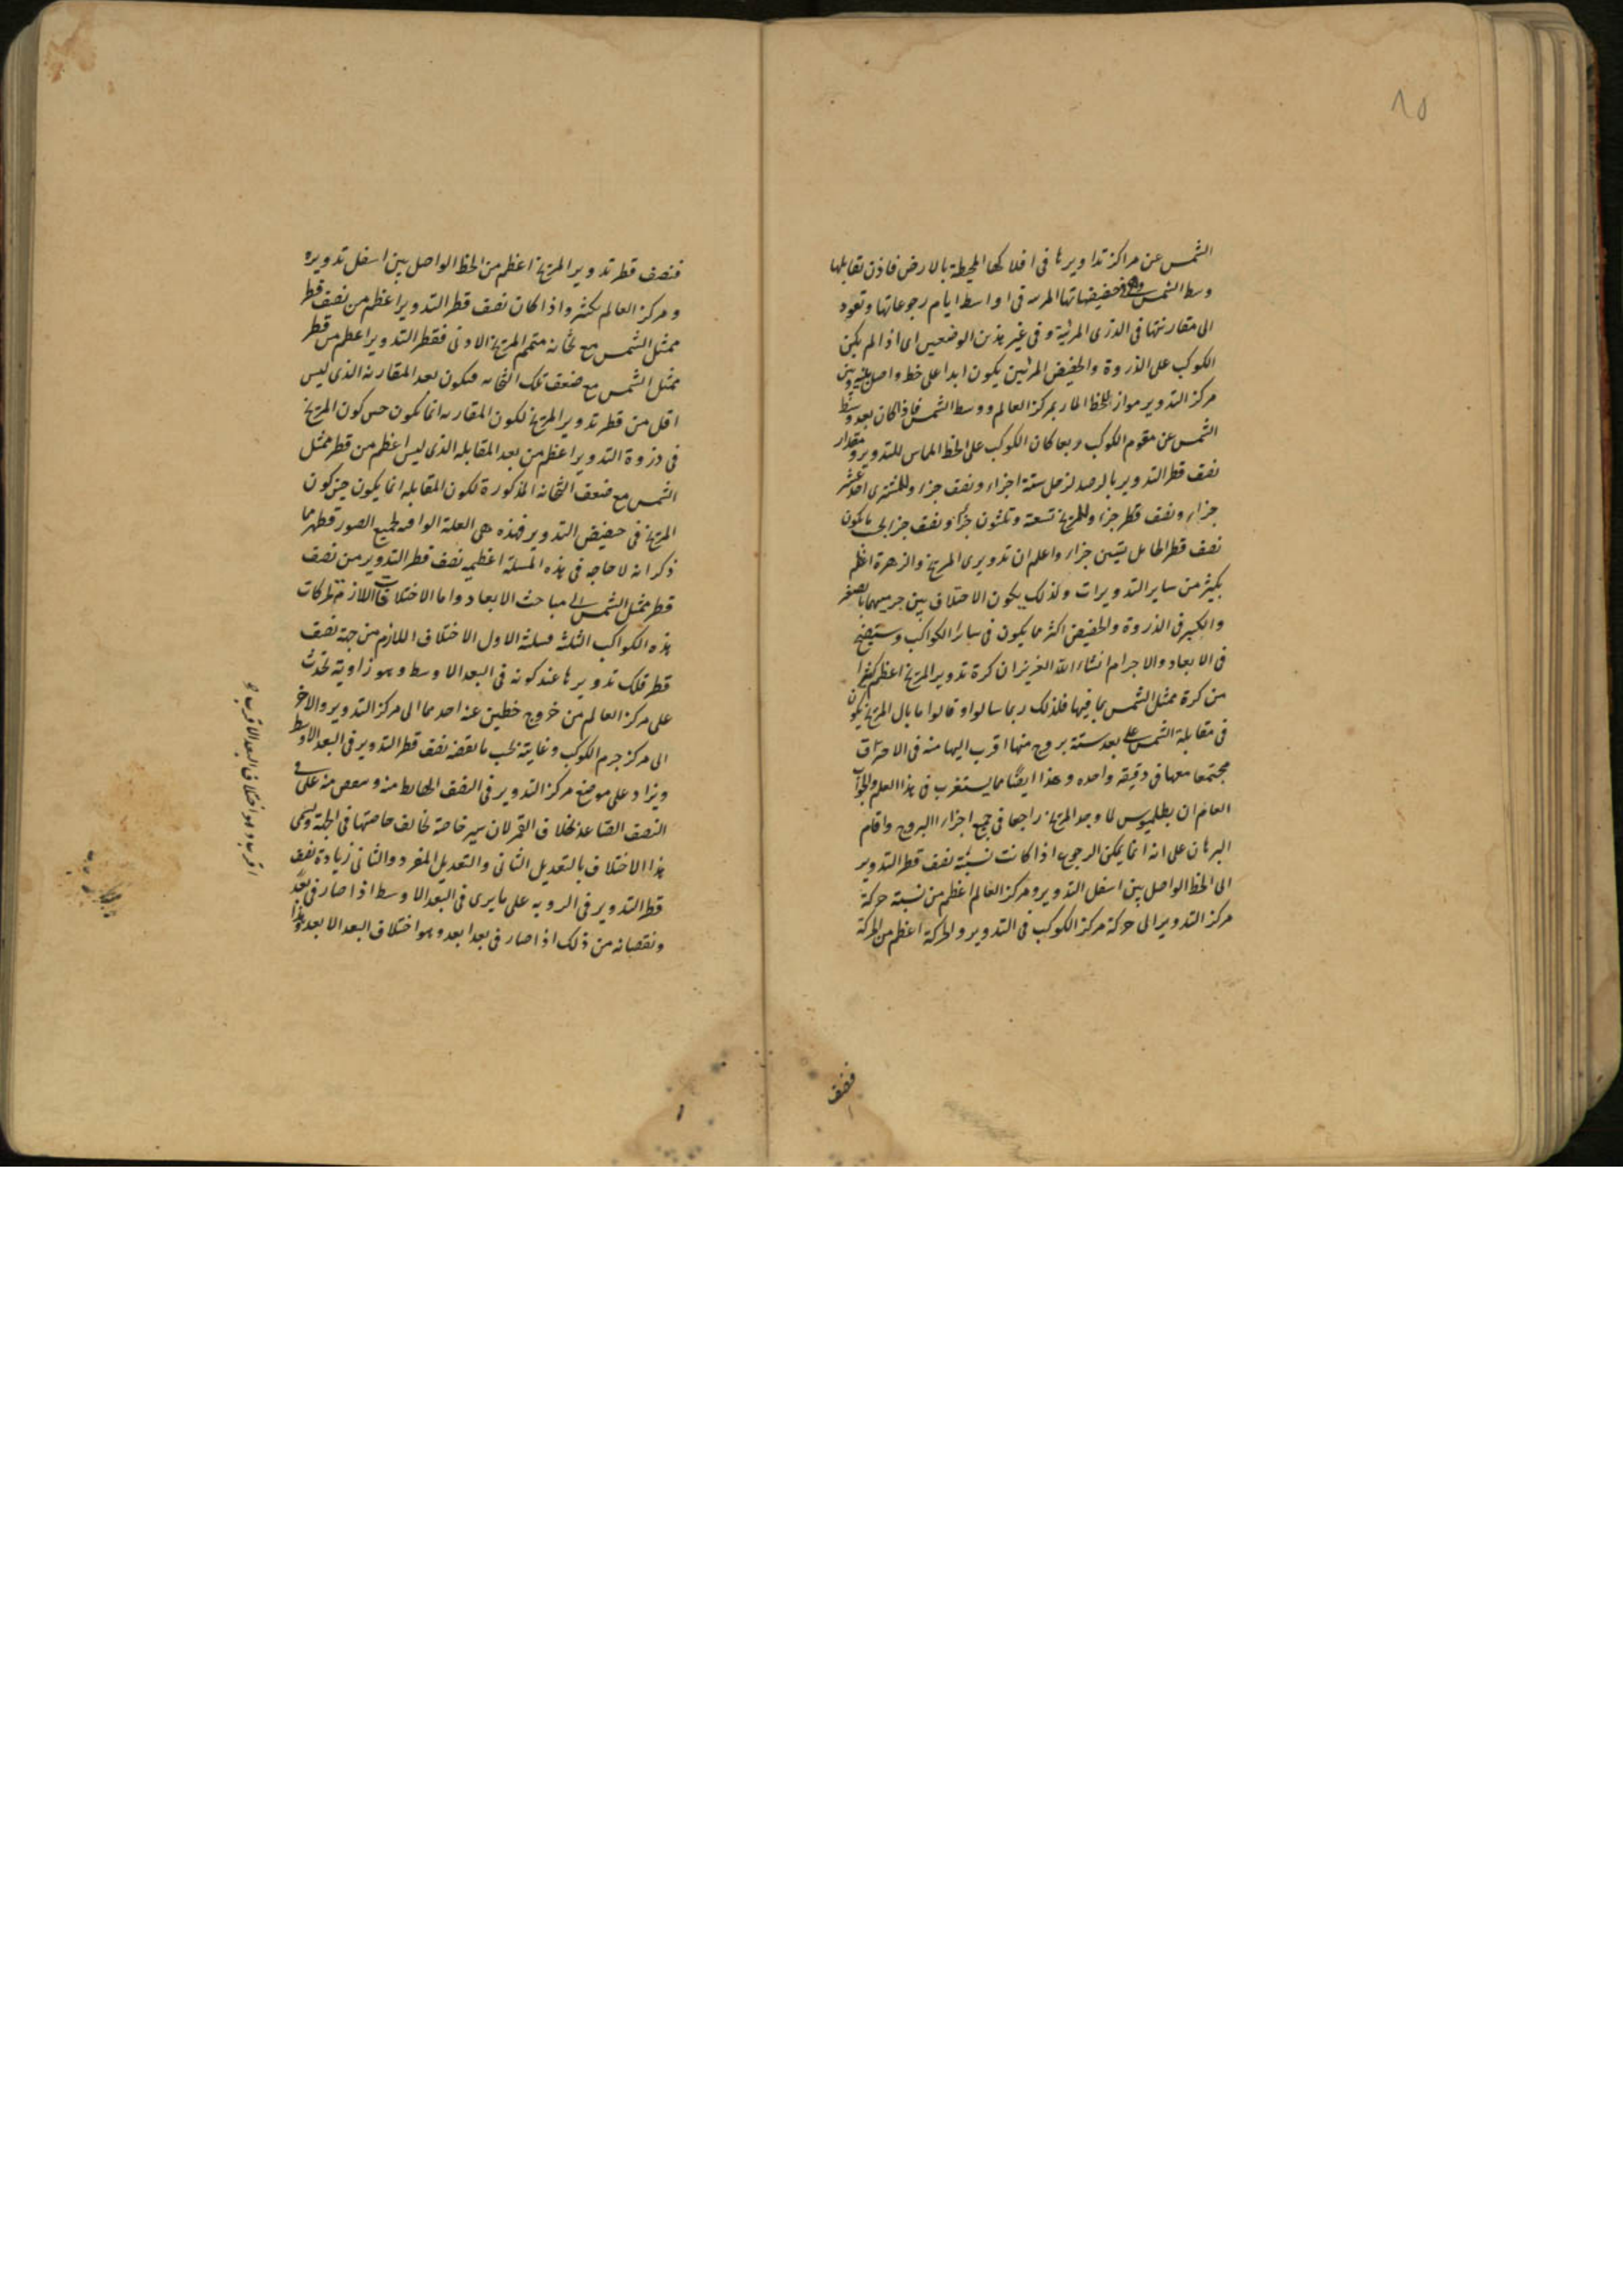 ٨٥
الشمس عن مراكز تداويرها فى افلاكها المحيطة بالارض فاذن تقابلها
وسط الشمس وهى فى حضيضاتها المرىىه فى اواسط ايام رجوعاتها وتعود
الى مقارنتها فى الذرى المرئية وفى غير هذين الوضعين اى اذا لم يكن
الكوكب على الذروة والحضيض المرئيين يكون ابدا على خط واصل بينه وبين
مركز التدوير مواز للخط المار بمركز العالم ووسط الشمس فاذا كان بعد وسط
الشمس عن مقوم الكوكب ربعا كان الكوكب على الخط المماس للتدوير ومقدار
نصف قطر التدوير بالرصد لزحل ستة اجزاء ونصف جزء وللمشترى احد عشر
جزاء ونصف قطر جزء وللمريخ تسعة وثلثون جزأ ونصف جزء على ما يكون
نصف قطر الحامل ستين جزاء واعلم ان تدويرى المريخ والزهرة اعظم
بكثير من ساير التدويرات وكذلك يكون الاختلاف بين جرميهما بالصغر
والكبر فى الذروة والحضيض اكثر مما يكون فى ساير الكواكب وستيضح
فى الابعاد والاجرام انشاء الله العزيز ان كرة تدوير المريخ اعظم كثيرا
من كرة ممثل الشمس بما فيها فلذلك ربما سالوا وقالوا ما بال المريخ يكون
فى مقابلة الشمس على بعد ستة بروج منها اقرب اليها منه فى الاحتراق
مجتمعا معها فى دقيقه واحده وهذا ايضًا مما يستغرب فى هذا العلم والجواب
العام ان بطلميوس لما وجد المريخ راجعا فى جميع اجزاء البروج واقام
البرهان على انه انما يمكن الرجوع اذا كانت نسبة نصف قطر التدوير
الى الخط الواصل بين اسفل التدوير ومركز العالم اعظم من نسبة حركة
مركز التدوير الى حركة مركز الكوكب فى التدوير والحركة اعظم من الحركة
فنصف
فنصف قطر تدوير المريخ اعظم من الخط الواصل بين اسفل تدويره
ومركز العالم بكثير واذا كان نصف قطر التدوير اعظم من نصف قطر
ممثل الشمس مع ثخانه متمم المريخ الادنى فقطر التدوير اعظم من قطر
ممثل الشمس مع ضعف تلك الثخانه فيكون بعد المقارنه الذى ليس
اقل من قطر تدوير المريخ لكون المقارنه انما يكون حين كون المريخ
فى ذروة التدوير اعظم من بعد المقابله الذى ليس اعظم من قطر ممثل
الشمس مع ضعف الثخانه المذكورة لكون المقابله انما يكون حين كون
المريخ فى حضيض التدوير فهذه هى العلة الوافيه لجميع الصور فظهر مما
ذكر انه لا حاجه فى هذه المسئلة اعظميه نصف قطر التدوير من نصف
قطر ممثل الشمس الى مباحث الابعاد واما الاختلافات اللازمة لحركات
هذه الكواكب الثلثه فثلثة الاول الاختلاف اللازم من جهة نصف
قطر فلك تدويرها عند كونه فى البعد الاوسط وهو زاوية تحدث
على مركز العالم من خروج خطين عنه احدهما الى مركز التدوير والاخر
الى مركز جرم الكوكب وغايته بحسب ما يقضه نصف قطر التدوير فى البعد الاوسط
ويزاد على موضع مركز التدوير فى النصف الهابط منه وينقص منه على فى
النصف الصّاعد بخلاف القمر لان سير خاصة تخالف خاصتها فى الجهة ويسمى
هذا الاختلاف بالتعديل الثانى والتعديل المفرد والثانى زيادة نصف
قطر التدوير فى الرويه على ما يرى فى البعد الاوسط اذا صار فى بعد
ونقصانه من ذلك اذا صار فى بعد ابعد وهو اختلاف البعد الابعد وهذا
اقرب وهو اختلاف البعد الاقرب